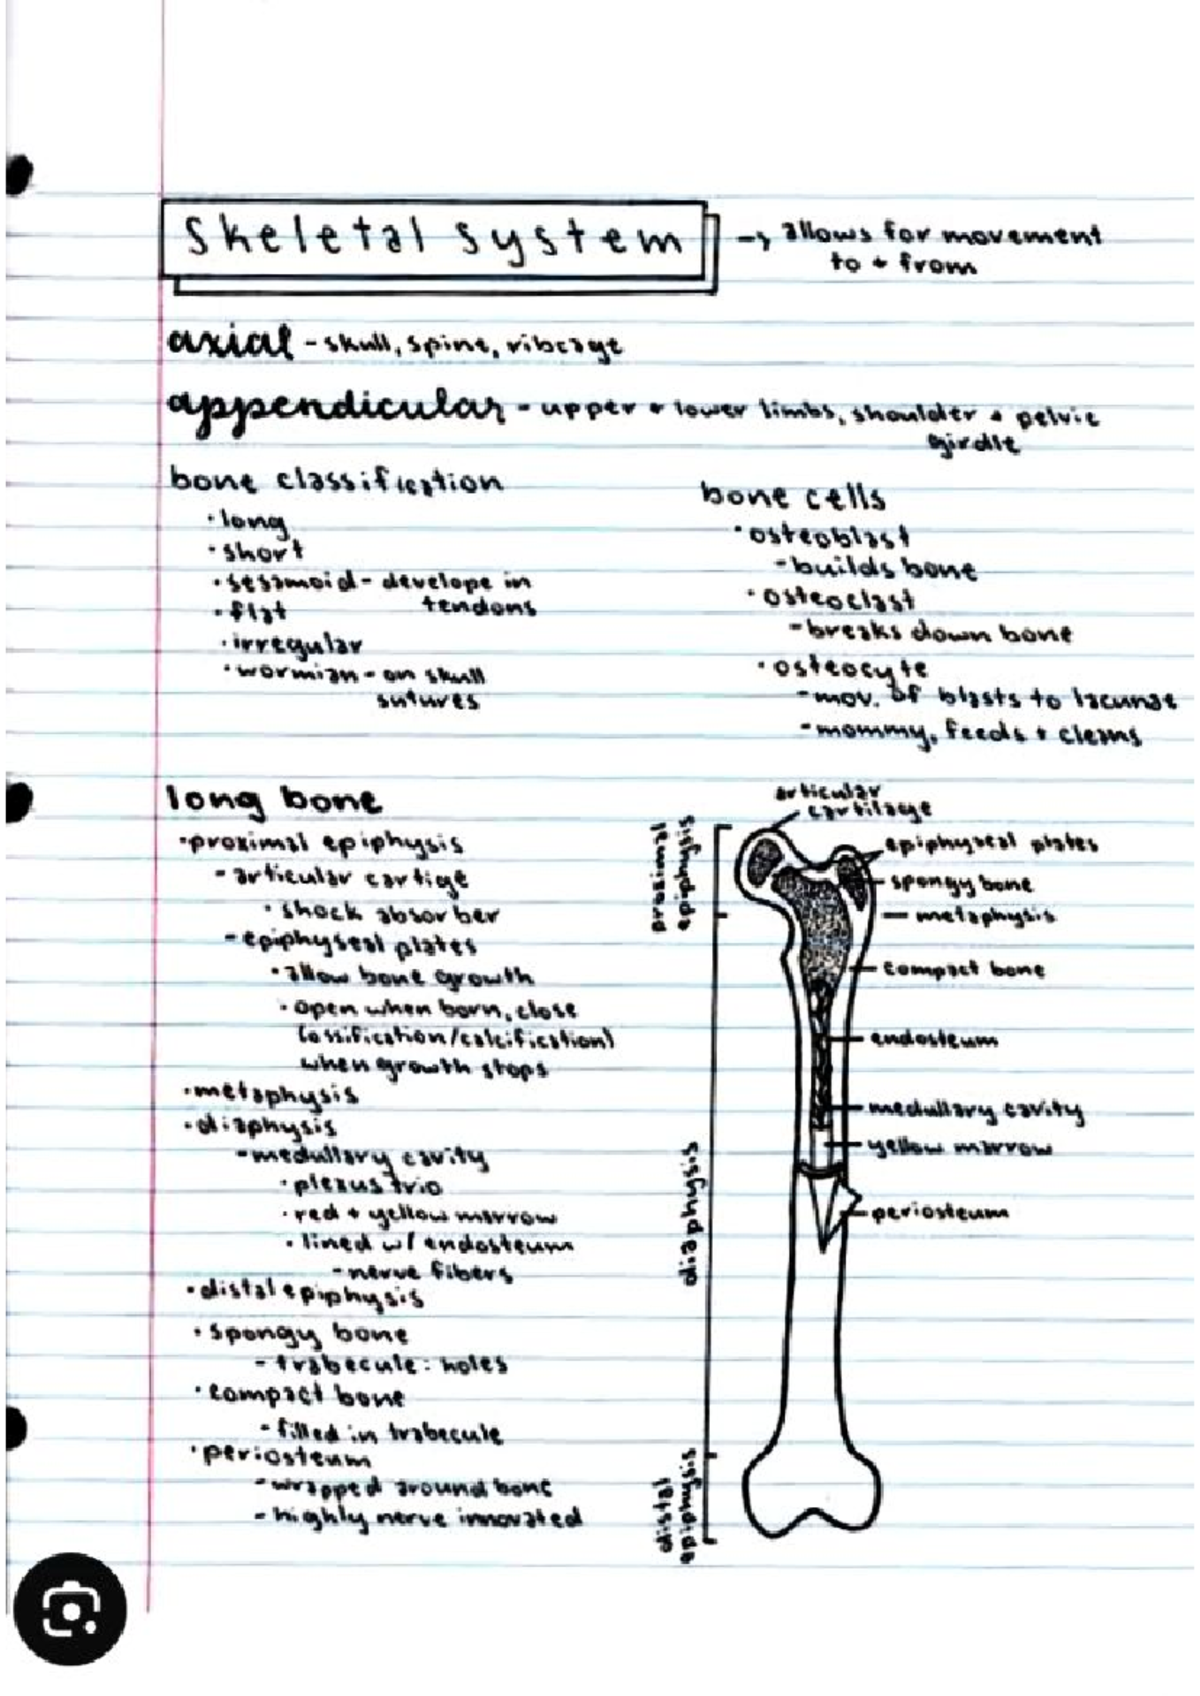 skeletal system → allows for movement
to + from
axial - skull, spine, ribcage
appendicular - upper + lower limbs, shoulder + pelvic
girdle
bone classification
· long
· short
· sesamoid - develope in
tendons
· flat
· irregular
· wormian - on skull
sutures
bone cells
· osteoblast
- builds bone
· osteoclast
- breaks down bone
· osteocyte
- mov. of blasts to lacunae
- mommy, feeds + cleans
long bone
· proximal epiphysis
- articular cartige
· shock absorber
- epiphyseal plates
· allow bone growth
· open when born, close
(ossification/calcification)
when growth stops
· metaphysis
· diaphysis
- medullary cavity
· plexus trio
· red + yellow marrow
· lined w/ endosteum
- nerve fibers
· distal epiphysis
· spongy bone
- trabecule: holes
· compact bone
- filled in trabecule
· periosteum
- wrapped around bone
- highly nerve innovated
articular
cartilage
epiphyseal plates
spongy bone
metaphysis
compact bone
endosteum
medullary cavity
yellow marrow
periosteum
proximal
epiphysis
diaphysis
distal
epiphysis